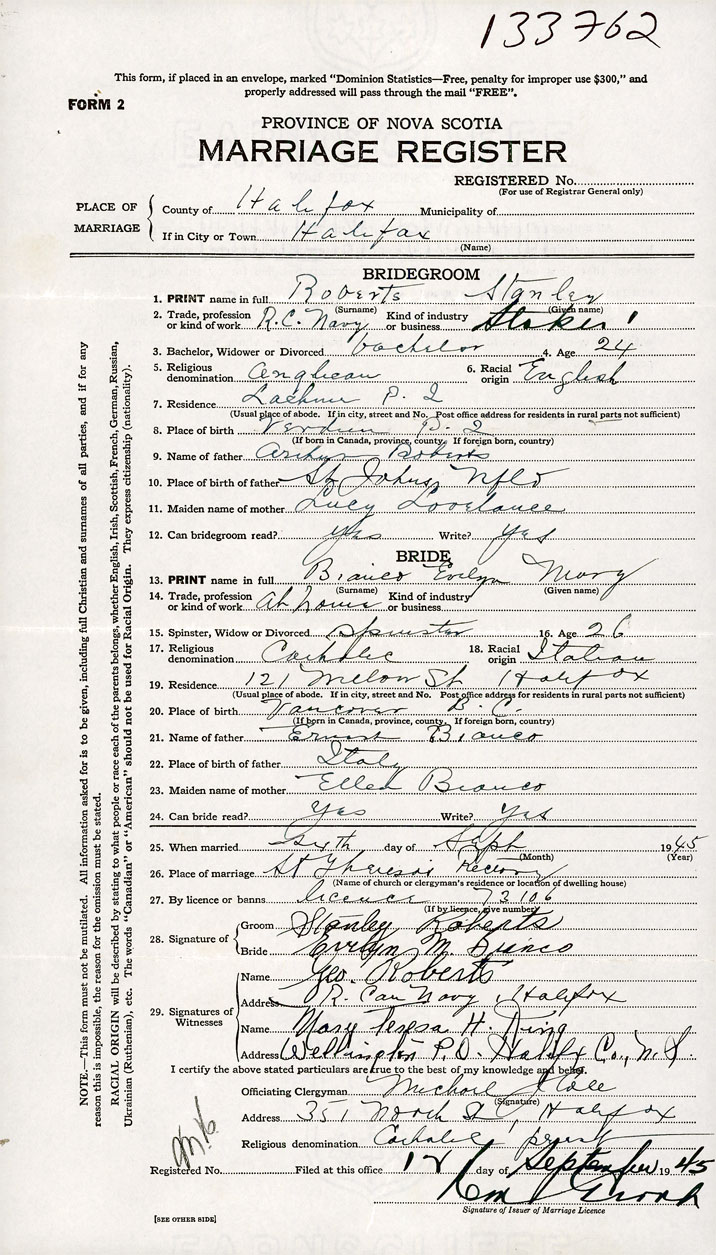 133762
This form, if placed in an envelope, marked “Dominion Statistics—Free, penalty for improper use $300,” and
properly addressed will pass through the mail “FREE”.
FORM 2
PROVINCE OF NOVA SCOTIA
MARRIAGE REGISTER
REGISTERED No.
(For use of Registrar General only)
PLACE OF MARRIAGE
County of Halifax Municipality of
If in City or Town Halifax
(Name)
BRIDEGROOM
1. PRINT name in full Roberts Stanley
(Surname) (Given name)
2. Trade, profession or kind of work R.C. Navy Kind of industry or business Stoker 1
3. Bachelor, Widower or Divorced bachelor 4. Age 24
5. Religious denomination Anglican 6. Racial origin English
7. Residence Lachine P. Q
(Usual place of abode. If in city, street and No. Post office address for residents in rural parts not sufficient)
8. Place of birth Verdun P. Q
(If born in Canada, province, county. If foreign born, country)
9. Name of father Arthur Roberts
10. Place of birth of father St Johns, Nfld
11. Maiden name of mother Lucy Lovelance
12. Can bridegroom read? yes Write? yes
BRIDE
13. PRINT name in full Bianco Evelyn Mary
(Surname) (Given name)
14. Trade, profession or kind of work At home Kind of industry or business
15. Spinster, Widow or Divorced Spinster 16. Age 26
17. Religious denomination Catholic 18. Racial origin Italian
19. Residence 121 St. Halifax
(Usual place of abode. If in city, street and No. Post office address for residents in rural parts not sufficient)
20. Place of birth Vancover B. C.
(If born in Canada, province, county. If foreign born, country)
21. Name of father Ernest Bianco
22. Place of birth of father Italy
23. Maiden name of mother Ellen Bianco
24. Can bride read? Yes Write? Yes
25. When married Sixth day of Seph 1945
(Month) (Year)
26. Place of marriage St Theresas Rectory
(Name of church or clergyman's residence or location of dwelling house)
27. By licence or banns licence 73106
(If by licence, give number)
28. Signature of
Groom Stanley Roberts
Bride Evelyn M. Bianco
29. Signatures of Witnesses
Name Geo. Roberts
Address R. Can Navy, Halifax
Name Mary Teresa H. King
Address Wellington P.O. Halifx Co., N.S.
I certify the above stated particulars are true to the best of my knowledge and belief.
Officiating Clergyman Michael
(Signature)
Address 351 North St, Halifax
Religious denomination Catholic priest
Registered No. Filed at this office 12 day of September 1945
Signature of Issuer of Marriage Licence
[SEE OTHER SIDE]
NOTE.—This form must not be mutilated. All information asked for is to be given, including full Christian and surnames of all parties, and if for any
reason this is impossible, the reason for the omission must be stated.
RACIAL ORIGIN will be described by stating to what people or race each of the parents belongs, whether English, Irish, Scottish, French, German, Russian,
Ukrainian (Ruthenian), etc. The words “Canadian” or “American” should not be used for Racial Origin. They express citizenship (nationality).